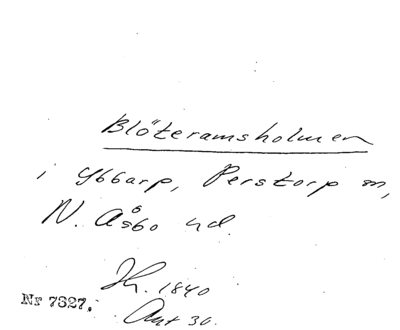 Blöteramsholmen
i Ybbarp, Perstorp sn,
N. Åsbo hd.
Jh. 1840
Ant 30.
Nr 7327.